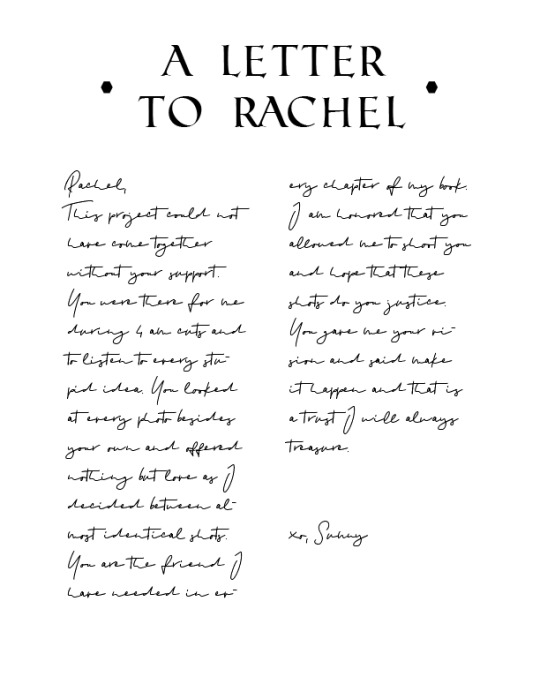 A LETTER
TO RACHEL
Rachel,
This project could not
have come together
without your support.
You were there for me
during 4 am cuts and
to listen to every stu-
pid idea. You looked
at every photo besides
your own and offered
nothing but love as I
decided between al-
most identical shots.
You are the friend I
have needed in ev-
ery chapter of my book.
I am honored that you
allowed me to shoot you
and hope that these
shots do you justice.
You gave me your vi-
sion and said make
it happen and that is
a trust I will always
treasure.
xo, Sunny